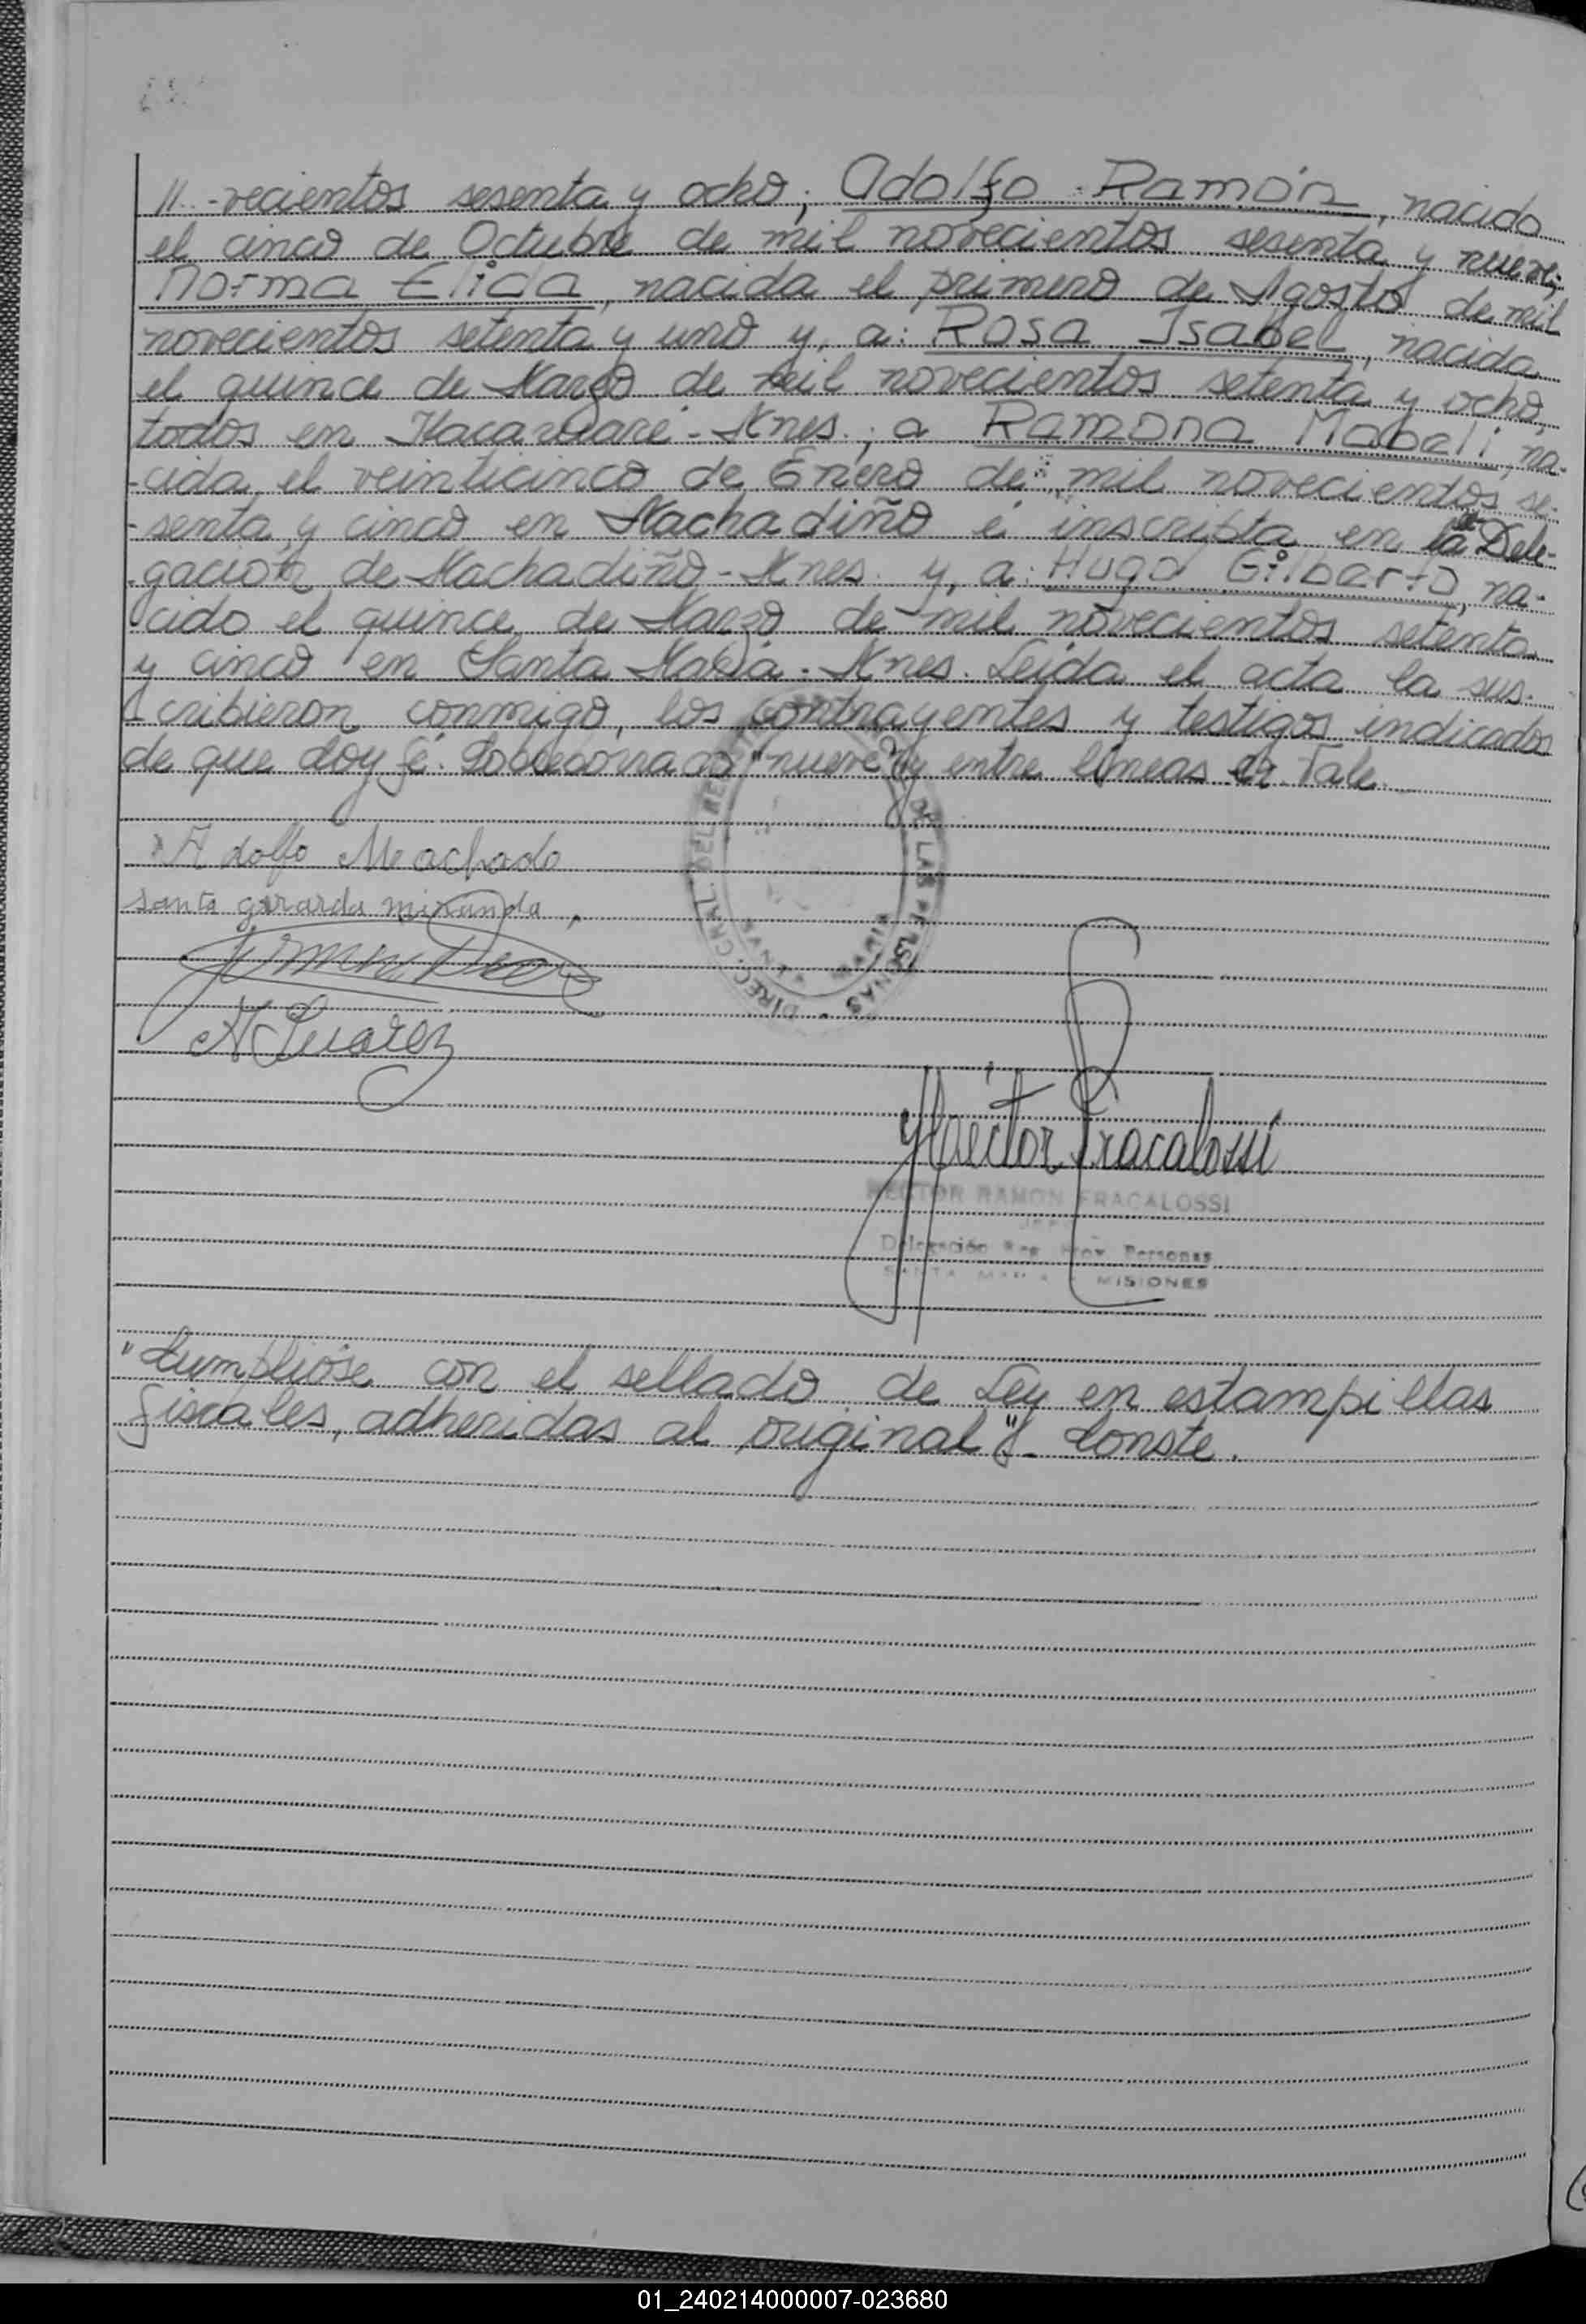 //-vecientos sesenta y ocho; Adolfo Ramón, nacido
el cinco de Octubre de mil novecientos sesenta y nueve;
Norma Elida, nacida el primero de Agosto de mil
novecientos setenta y uno y, a: Rosa Isabel, nacida
el quince de Marzo de mil novecientos setenta y ocho,
todos en Itacaruaré - Mnes.; a Ramona Mabeli, na-
-cida el veinticinco de Enero de mil novecientos se-
-senta y cinco en Machadiño é inscripta en la Dele-
gación de Machadiño - Mnes. y, a: Hugo Gilberto, na-
cido el quince de Marzo de mil novecientos setenta
y cinco en Santa María - Mnes. Leída el acta la sus-
cribieron conmigo, los contrayentes y testigos indicados
de que doy fé. Sobreborrado "nueve" y entre líneas Vale.
Adolfo Machado
santa gerarda miranda
A Suarez
DIREC. GRAL. DEL REGISTRO DE LAS PERSONAS
Héctor Fracalossi
HECTOR RAMON FRACALOSSI
JEFE
Delegación Reg. Prov. Personas
SANTA MARIA MISIONES
"Cumplióse con el sellado de Ley en estampillas
fiscales, adheridas al original". Conste.
01_240214000007-023680